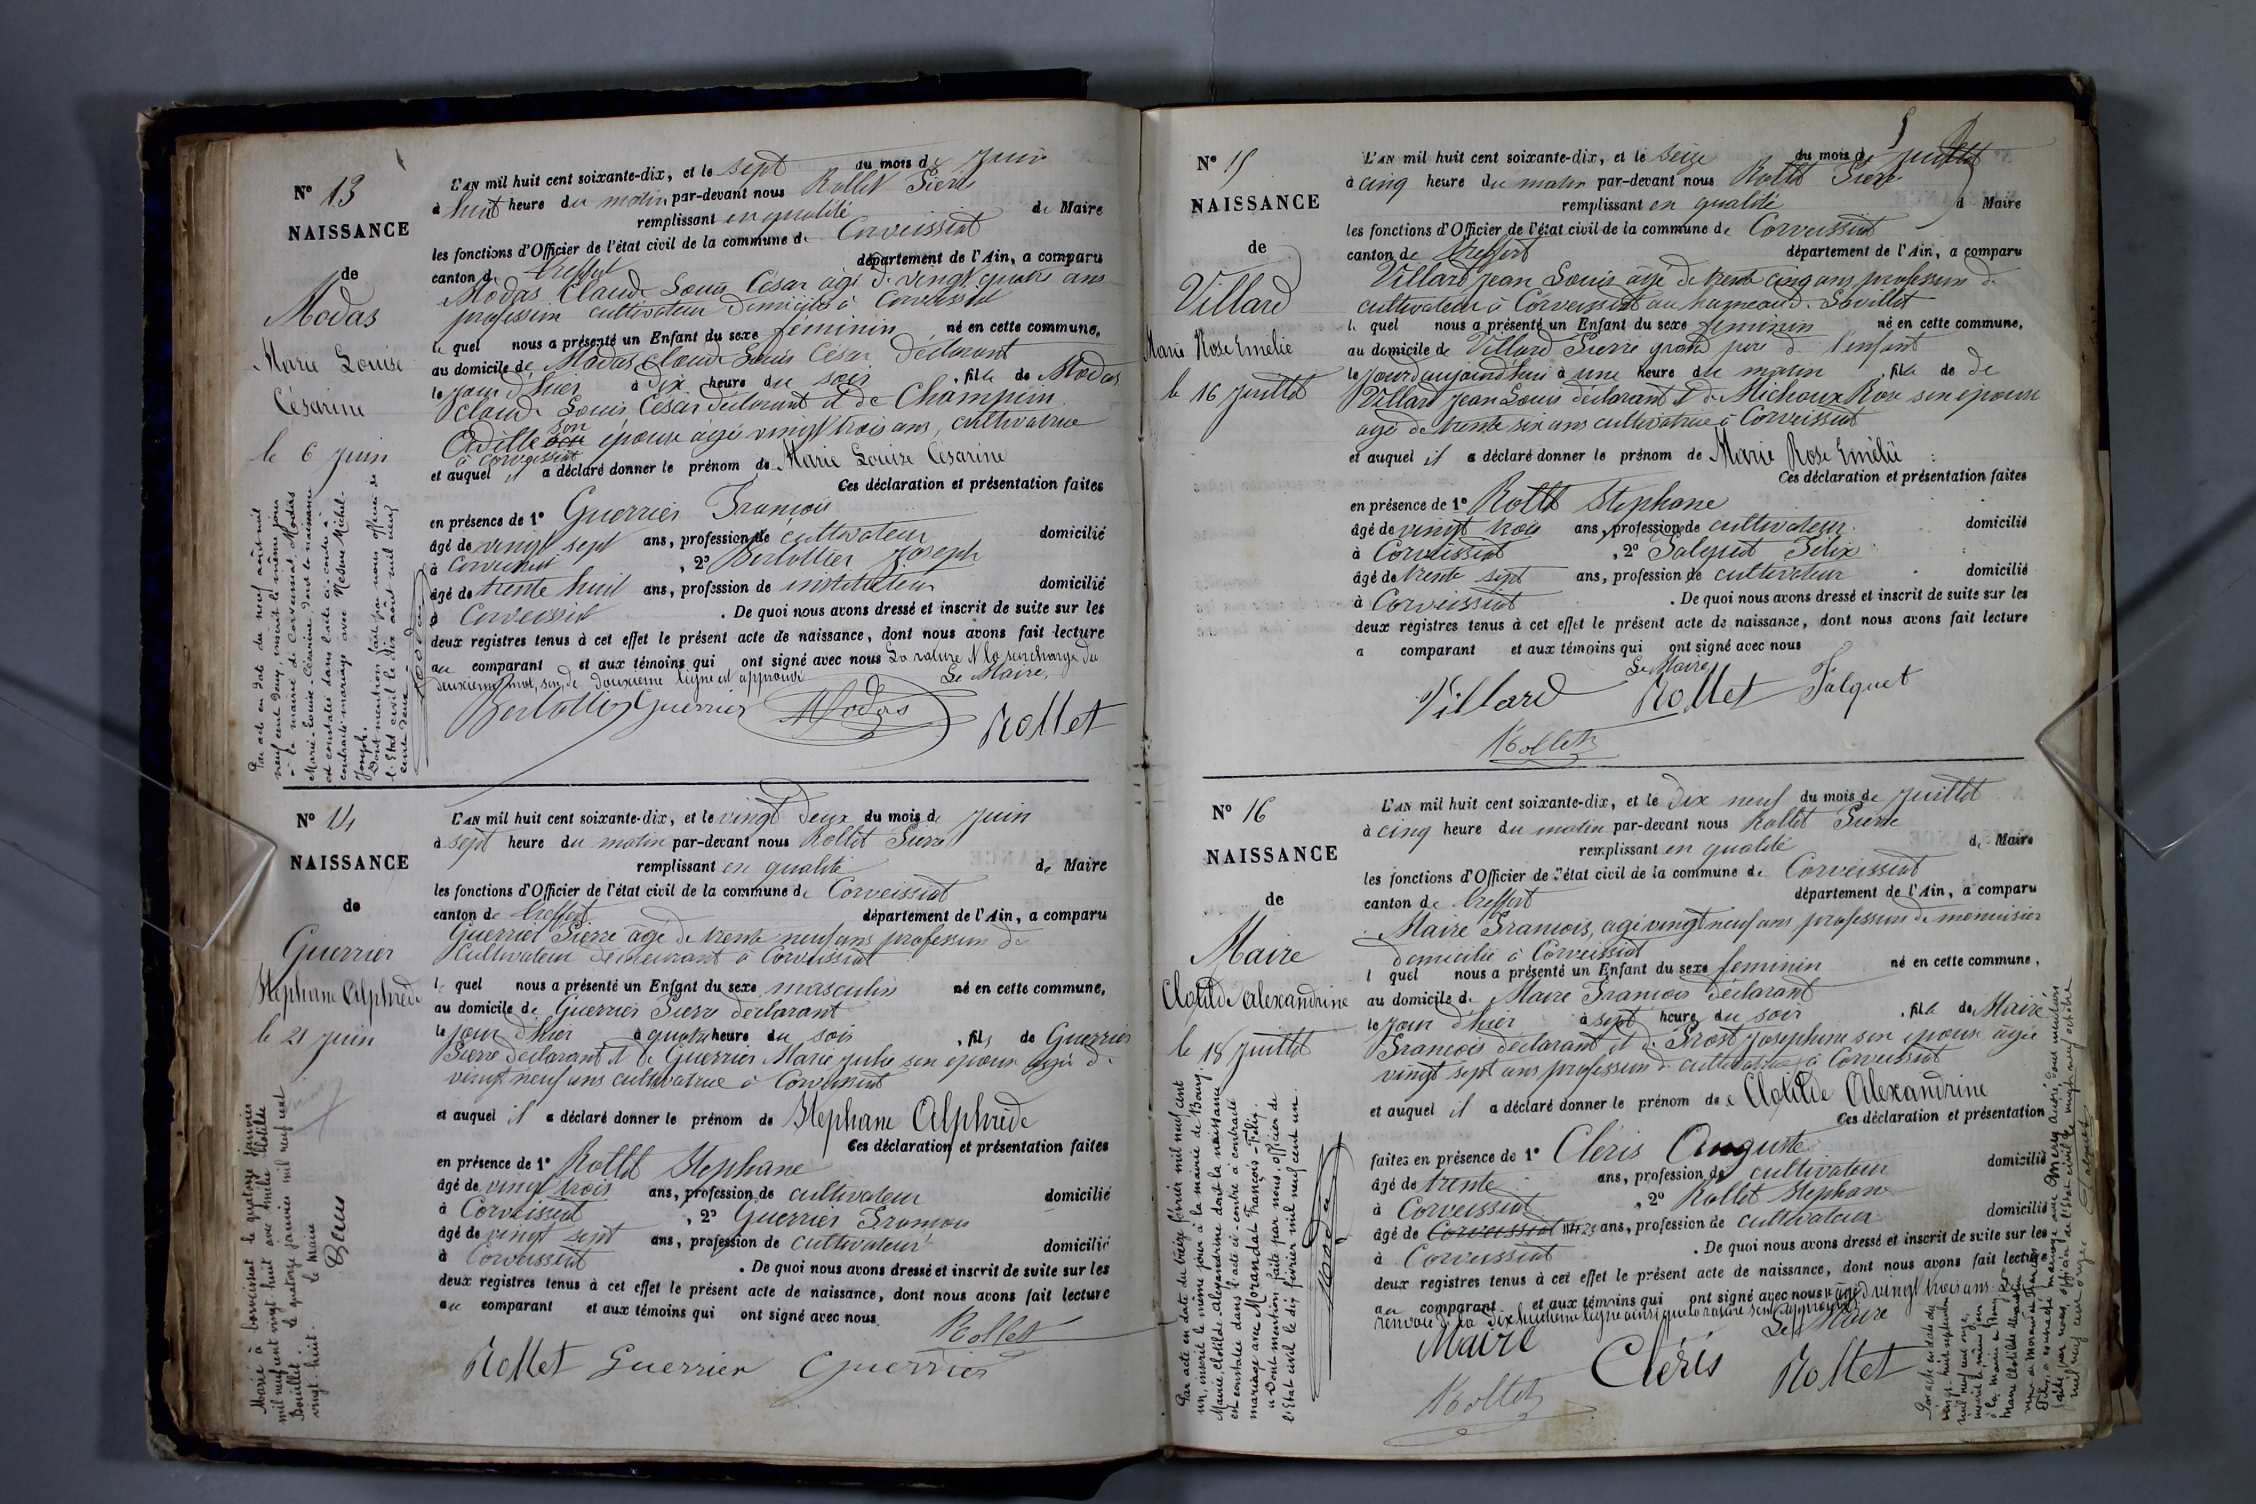 N° 13
NAISSANCE
de
Modas
Marie Louise
Césarine
le 6 juin
Par acte en date du neuf août mil
neuf cent deux, inscrit le même jour
à la mairie de Corveissiat, Modas
Marie-Louise-Césarine, dont la naissance
est constatée dans l'acte ci-contre a
contracté mariage avec Mesme Michel-
Joseph.
Dont mention faite par nous officier de
l'Etat civil le dix août mil neuf
cent deux.
L'AN mil huit cent soixante-dix, et le sept du mois de juin
à huit heure du matin par-devant nous Rollet Pierre
remplissant en qualité de Maire
les fonctions d'Officier de l'état civil de la commune de Corveissiat
canton de Treffort département de l'Ain, a comparu
Modas Claude Louis César âgé de vingt quatre ans
profession cultivateur domicilié à Corveissiat
le quel nous a présenté un Enfant du sexe féminin né en cette commune,
au domicile de Modas Claude Louis César déclarant
le jour d'hier à dix heure du soir, fille de Modas
Claude Louis César déclarant et de Champion
Adille son épouse âgée vingt trois ans, cultivatrice
à Corveissiat
et auquel il a déclaré donner le prénom de Marie Louise Césarine
Ces déclaration et présentation faites
en présence de 1° Guerrier François
âgé de vingt sept ans, profession de cultivateur domicilié
à Corveissiat, 2° Bertollier Joseph
âgé de trente huit ans, profession de instituteur domicilié
à Corveissiat. De quoi nous avons dressé et inscrit de suite sur les
deux registres tenus à cet effet le présent acte de naissance, dont nous avons fait lecture
au comparant et aux témoins qui ont signé avec nous La rature et la surcharge du
deuxième mot, son, de douxième ligne est approuvé
Le Maire,
Bertollier Guerrier Modas Rollet
N° 14
NAISSANCE
de
Guerrier
Stéphane Alphrède
le 21 juin
Marié à Corveissiat le quatorze janvier
mil neuf cent vingt huit avec Emélie Clotilde
Bouillet. le quatorze janvier mil neuf cent
vingt-huit. le Maire
L'AN mil huit cent soixante-dix, et le vingt deux du mois de juin
à sept heure du matin par-devant nous Rollet Pierre
remplissant en qualité de Maire
les fonctions d'Officier de l'état civil de la commune de Corveissiat
canton de Treffort département de l'Ain, a comparu
Guerrier Pierre âgé de trente neuf ans profession de
Cultivateur demeurant à Corveissiat
le quel nous a présenté un Enfant du sexe masculin né en cette commune,
au domicile de Guerrier Pierre déclarant
le jour d'hier à quatre heure du soir, fils de Guerrier
Pierre déclarant et de Guerrier Marie Julie son épouse âgée de
vingt neuf ans cultivatrice à Corveissiat
et auquel il a déclaré donner le prénom de Stéphane Alphrède
Ces déclaration et présentation faites
en présence de 1° Rollet Stéphane
âgé de vingt trois ans, profession de cultivateur domicilié
à Corveissiat, 2° Guerrier François
âgé de vingt sept ans, profession de cultivateur domicilié
à Corveissiat. De quoi nous avons dressé et inscrit de suite sur les
deux registres tenus à cet effet le présent acte de naissance, dont nous avons fait lecture
au comparant et aux témoins qui ont signé avec nous.
Rollet
Rollet Guerrier Guerrier
5
N° 15
NAISSANCE
de
Villard
Marie Rose Emélie
le 16 juillet
L'AN mil huit cent soixante-dix, et le seize du mois de juillet
à cinq heure du matin par-devant nous Rollet Pierre
remplissant en qualité d Maire
les fonctions d'Officier de l'état civil de la commune de Corveissiat
canton de Treffort département de l'Ain, a comparu
Villard Jean Louis âgé de trente cinq ans, profession de
cultivateur à Corveissiat au hameau de
le quel nous a présenté un Enfant du sexe féminin né en cette commune,
au domicile de Villard Pierre grand père de l'enfant
le jour d'aujourd'hui à une heure du matin, fille de de
Villard Jean Louis déclarant et de Michaux Rose son épouse
âgé de trente six ans cultivatrice à Corveissiat
et auquel il a déclaré donner le prénom de Marie Rose Emélie
Ces déclaration et présentation faites
en présence de 1° Rollet Stéphane
âgé de vingt trois ans, profession de cultivateur domicilié
à Corveissiat, 2° Falquet Félix
âgé de trente sept ans, profession de cultivateur domicilié
à Corveissiat. De quoi nous avons dressé et inscrit de suite sur les
deux registres tenus à cet effet le présent acte de naissance, dont nous avons fait lecture
a comparant et aux témoins qui ont signé avec nous
Le Maire
Villard Rollet Falquet
Rollet
N° 16
NAISSANCE
de
Maire
Clotilde Alexandrine
le 18 juillet
Par acte en date du treize février mil neuf cent
un, inscrit le même jour à la mairie de Bourg,
Maire Clotilde-Alexandrine dont la naissance
est constatée dans l'acte ci-contre a contracté
mariage avec Morandat François-Félix.
Dont mention faite par nous, officier de
l'Etat civil le dix février mil neuf cent un.
L'AN mil huit cent soixante-dix, et le dix neuf du mois de juillet
à cinq heure du matin par-devant nous Rollet Pierre
remplissant en qualité de Maire
les fonctions d'Officier de l'état civil de la commune de Corveissiat
canton de Treffort département de l'Ain, a comparu
Maire François, âgé vingt neuf ans profession de menuisier
domicilié à Corveissiat
l quel nous a présenté un Enfant du sexe féminin né en cette commune,
au domicile de Maire François déclarant
le jour d'hier à sept heure du soir, fille de Maire
François déclarant et de Prost Josephine son épouse âgée
vingt sept ans profession de cultivatrice à Corveissiat
et auquel il a déclaré donner le prénom de Clotilde Alexandrine
Ces déclaration et présentation
faites en présence de 1° Cléris Auguste
âgé de trente ans, profession de cultivateur domicilié
à Corveissiat, 2° Rollet Stéphane
âgé de Corveissiat ans, profession de cultivateur domicilié
à Corveissiat. De quoi nous avons dressé et inscrit de suite sur les
deux registres tenus à cet effet le présent acte de naissance, dont nous avons fait lecture
au comparant et aux témoins qui ont signé avec nous âgé vingt trois ans
renvoie de la dixhuitième ligne ainsi que la rature sont approuvés
Le Maire
Maire Cléris Rollet
Rollet
Par acte en date du
vingt-huit septembre
mil neuf cent onze,
inscrit le même jour
à la mairie de Bourg
Maire Clotilde Alexandrine